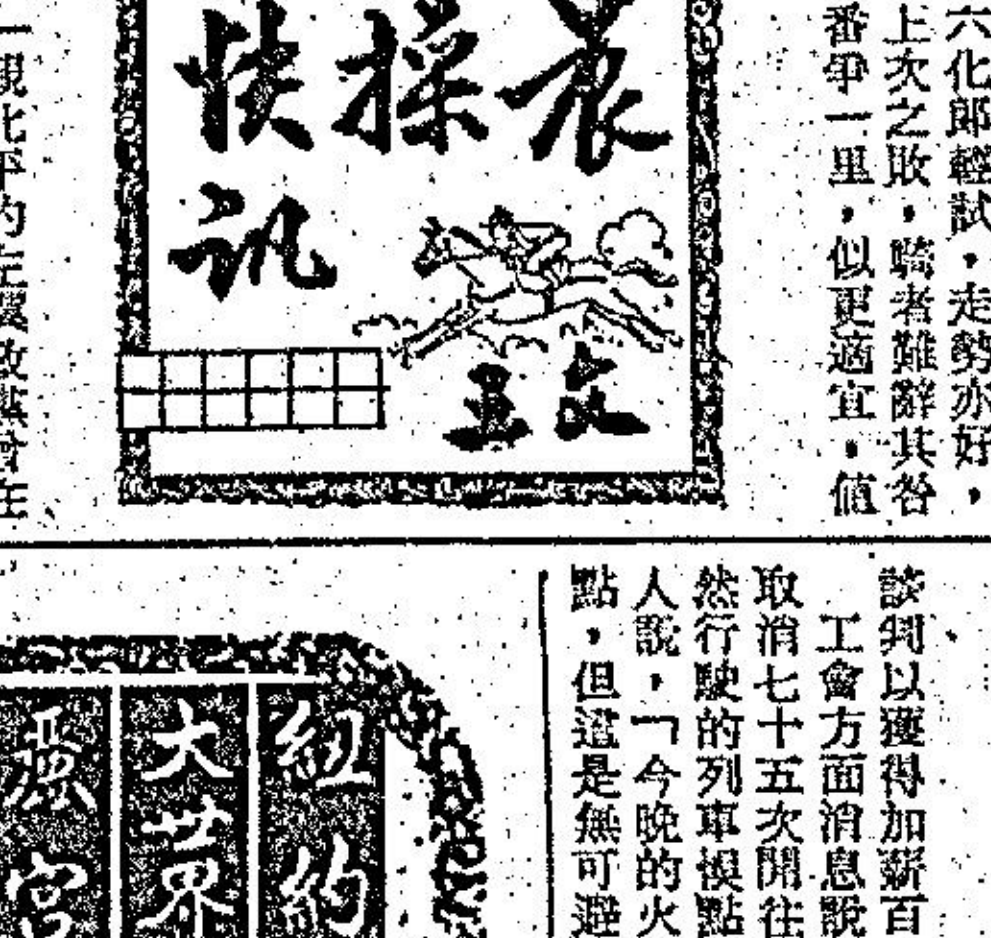 六化郎輕試，走勢亦好，
上次之敗，騎者難辭其咎
番爭一里，似更適宜，值
晨操快訊
文王
談判以獲得加薪百
工會方面消息說
取消七十五次開往
然行駛的列車誤點
人說，「今晚的火
點，但這是無可避
紐約
大世界
麗宮